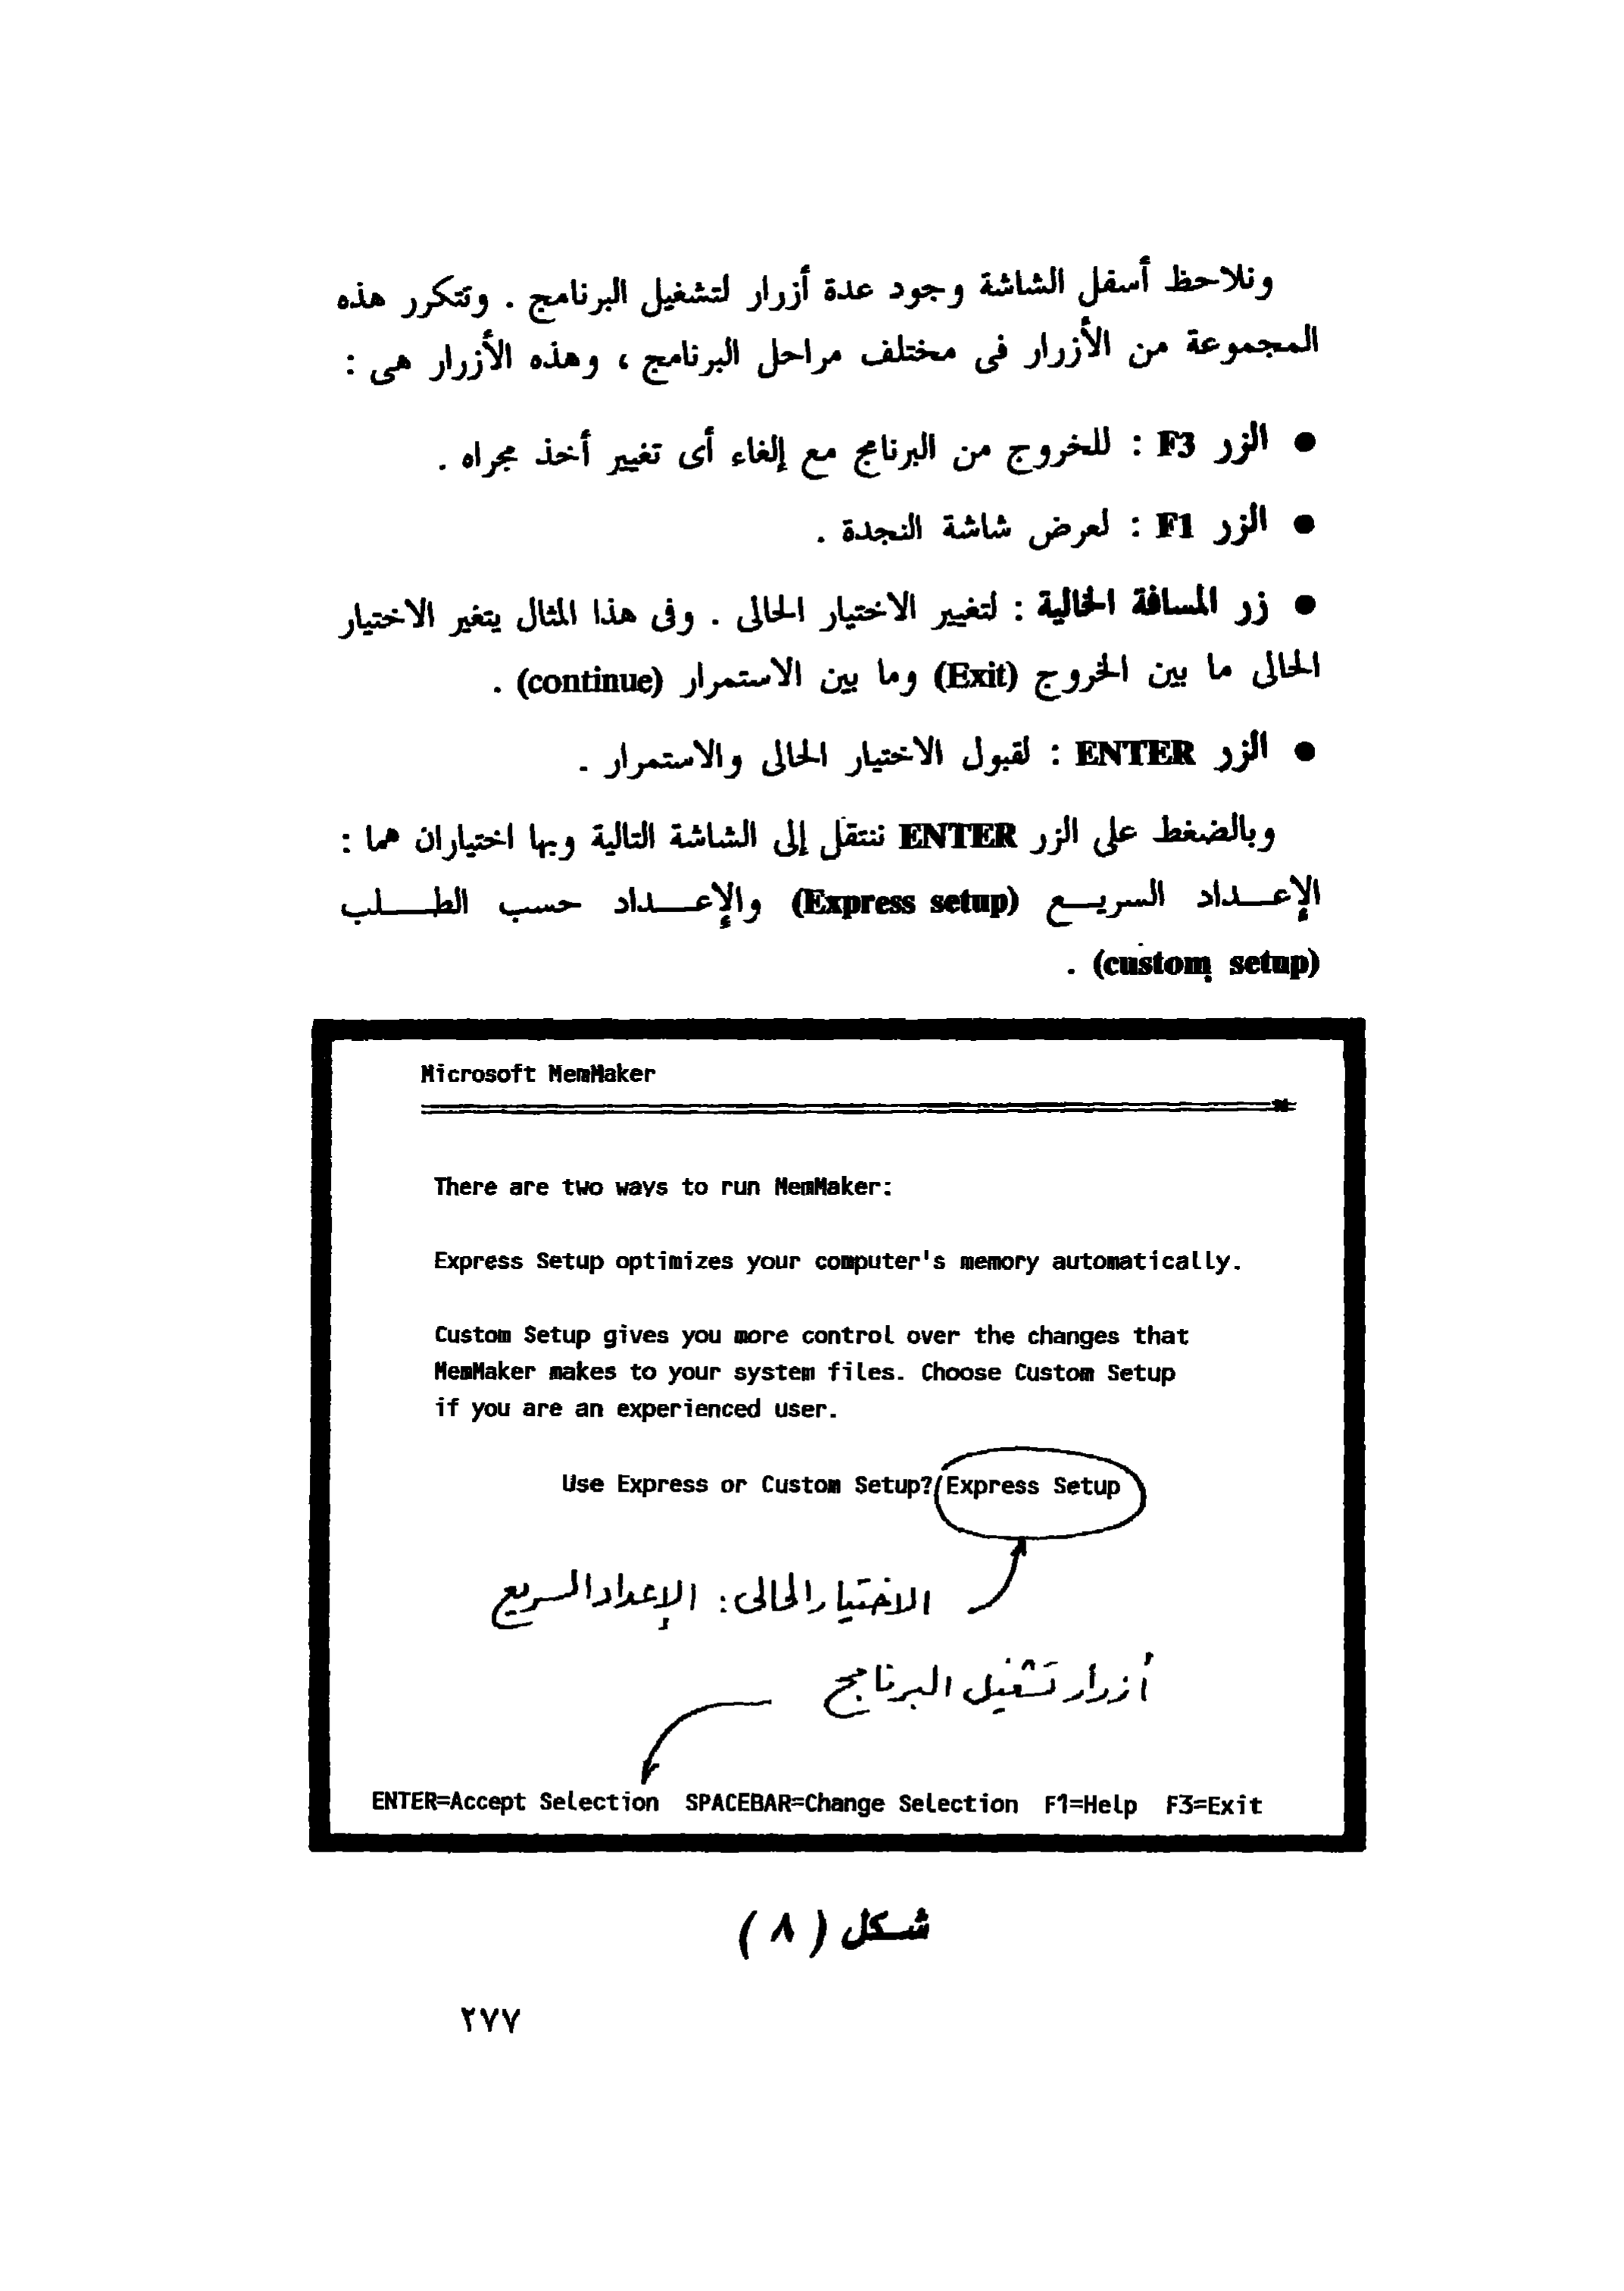 ونلاحظ أسفل الشاشة وجود عدة أزرار لتشغيل البرنامج . وتتكرر هذه
المجموعة من الأزرار فى مختلف مراحل البرنامج ، وهذه الأزرار هى :
● الزر F3 : للخروج من البرنامج مع إلغاء أى تغيير أخذ مجراه .
● الزر F1 : لعرض شاشة النجدة .
● زر المسافة الخالية : لتغيير الاختيار الحالى . وفى هذا المثال يتغير الاختيار
الحالى ما بين الخروج (Exit) وما بين الاستمرار (continue) .
● الزر ENTER : لقبول الاختيار الحالى والاستمرار .
وبالضغط على الزر ENTER ننتقل إلى الشاشة التالية وبها اختياران هما :
الإعـــداد السريـــع (Express setup) والإعـــداد حسب الطـــلب
(custom setup) .
Microsoft MemMaker
There are two ways to run MemMaker:
Express Setup optimizes your computer's memory automatically.
Custom Setup gives you more control over the changes that
MemMaker makes to your system files. Choose Custom Setup
if you are an experienced user.
Use Express or Custom Setup? Express Setup
الاختيار الحالى : الإعداد السريع
أزرار تشغيل البرنامج
ENTER=Accept Selection SPACEBAR=Change Selection F1=Help F3=Exit
شـكل ( ٨ )
٢٧٧